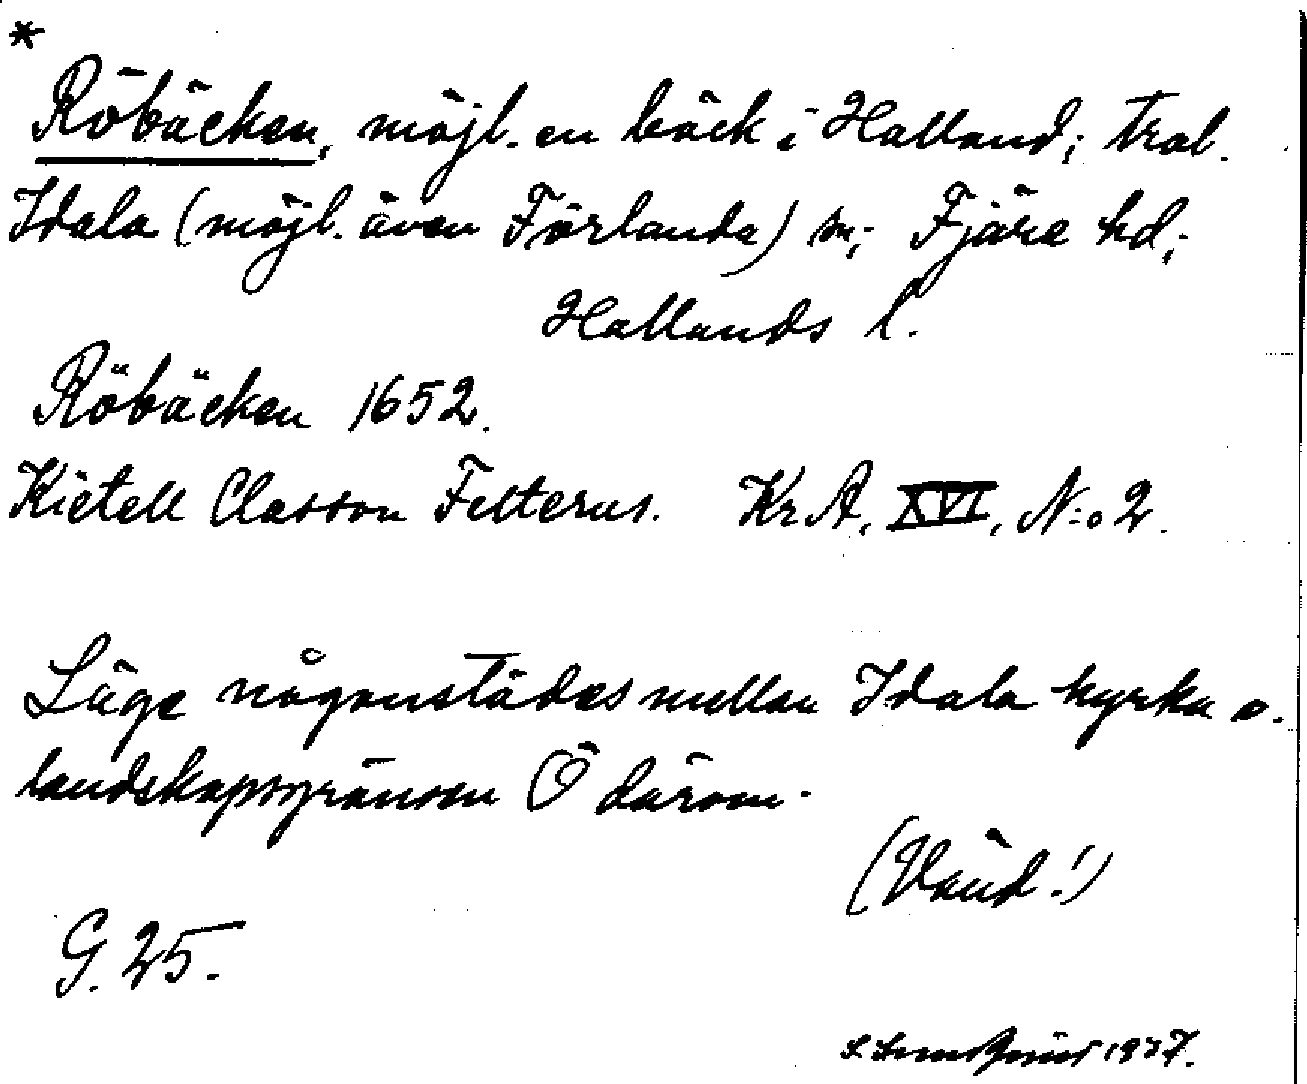 *
Röbäcken, möjl. en bäck i Halland; trol.
Idala (möjl. även Förlanda) sn; Fjäre hd;
Hallands l.
Röbäcken 1652.
Kietell Classon Felterus. Kr. A, XVI, N:o 2.
Läge någonstädes mellan Idala kyrka o.
landskapsgränsen Ö därom.
(Vänd!)
G. 25.
1927.